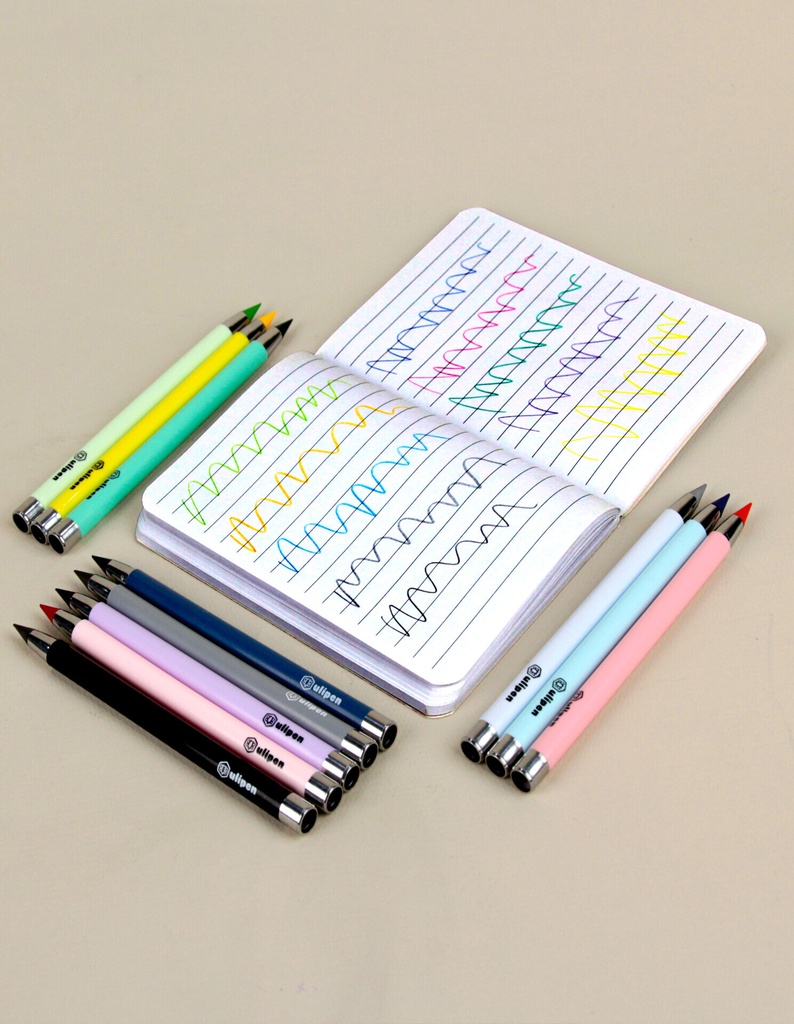 ulipen
ulipen
ulipen
ulipen
ulipen
ulipen
ulipen
ulipen
ulipen
ulipen
ulipen